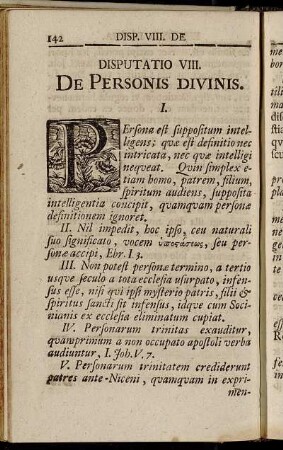 142 DISP. VIII. DE
DISPUTATIO VIII.
DE PERSONIS DIVINIS.
I.
PErsona est suppositum intel-
ligens; quæ est definitio nec
intricata, nec quæ intelligi
nequeat. Quin simplex e-
tiam homo, patrem, filium,
spiritum audiens, supposita
intelligentia concipit, quamquam personæ
definitionem ignoret.
II. Nil impedit, hoc ipso, ceu naturali
suo significato, vocem ὑποστάσεως, seu per-
sonæ accipi, Ebr. I. 3.
III. Non potest personæ termino, a tertio
usque seculo a tota ecclesia usurpato, infen-
sus esse, nisi qui ipsi mysterio patris, filii &
spiritus sancti sit infensus, idque cum Soci-
nianis ex ecclesia eliminatum cupiat.
IV. Personarum trinitas exauditur,
quamprimum a non occupato apostoli verba
audiuntur, I. Joh. V. 7.
V. Personarum trinitatem crediderunt
patres ante-Niceni, quamquam in expri-
men-